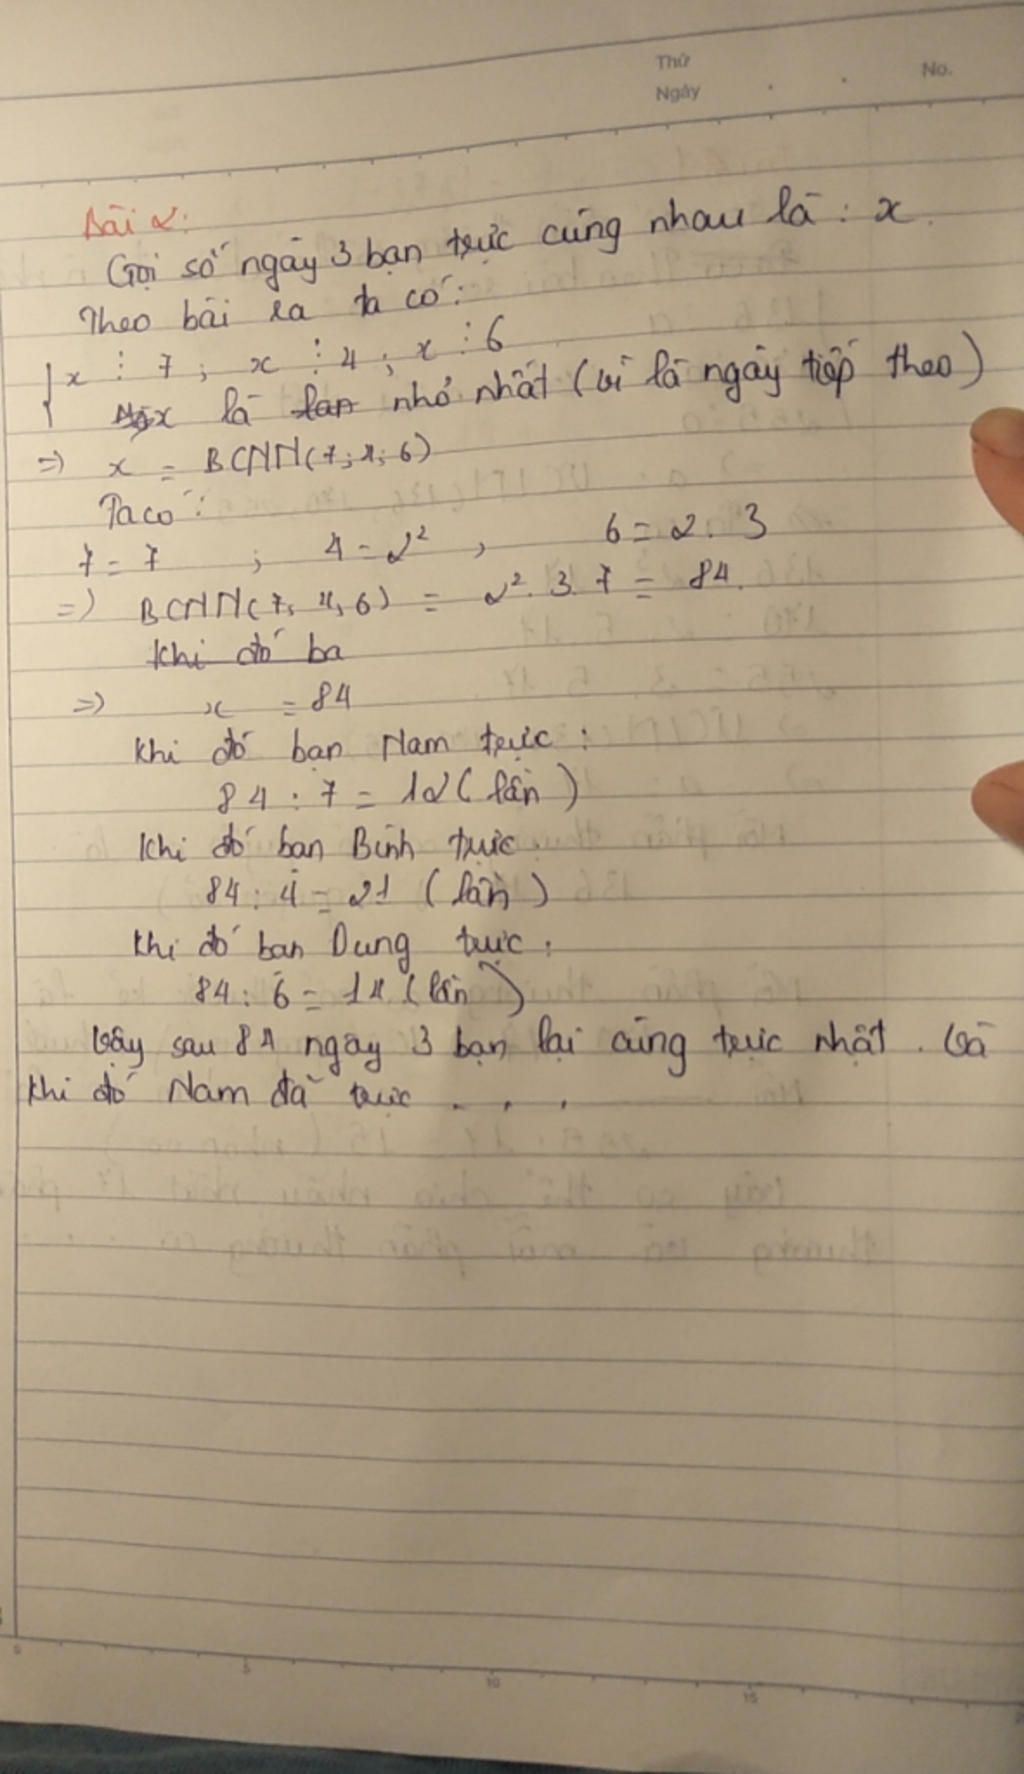 Thứ
Ngày
No.
Bài 2:
Gọi số ngày 3 bạn trực cùng nhau là : x.
Theo bài ra ta có :
x ⋮ 7 ; x ⋮ 4 ; x ⋮ 6
x là lan nhỏ nhất (vì là ngày tiếp theo)
=> x = BCNN(7; 4; 6)
Ta có :
7 = 7 ; 4 = 2² , 6 = 2. 3
=> BCNN(7, 4, 6) = 2². 3. 7 = 84.
Khi đó ba
=> x = 84
Khi đó bạn Nam trực :
84 : 7 = 12 ( lần )
Khi đó bạn Bình trực
84 : 4 = 21 ( lần )
Khi đó bạn Dung trực :
84 : 6 = 14 ( lần )
Vậy sau 84 ngày 3 bạn lại cùng trực nhật . Và
khi đó Nam đã trực . . .
0 5 10 15